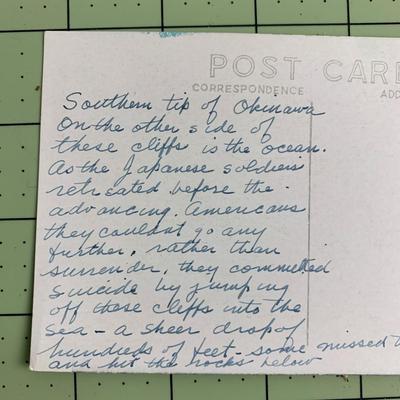 POST CARD
CORRESPONDENCE ADD
Southern tip of Okinawa
On the other side of
these cliffs is the ocean.
As the Japanese soldiers
retreated before the
advancing Americans
they couldnt go any
further, rather than
surrender, they committed
suicide by jumping
off these cliffs into the
sea - a sheer drop of
hundreds of feet - some missed
and hit the rocks below